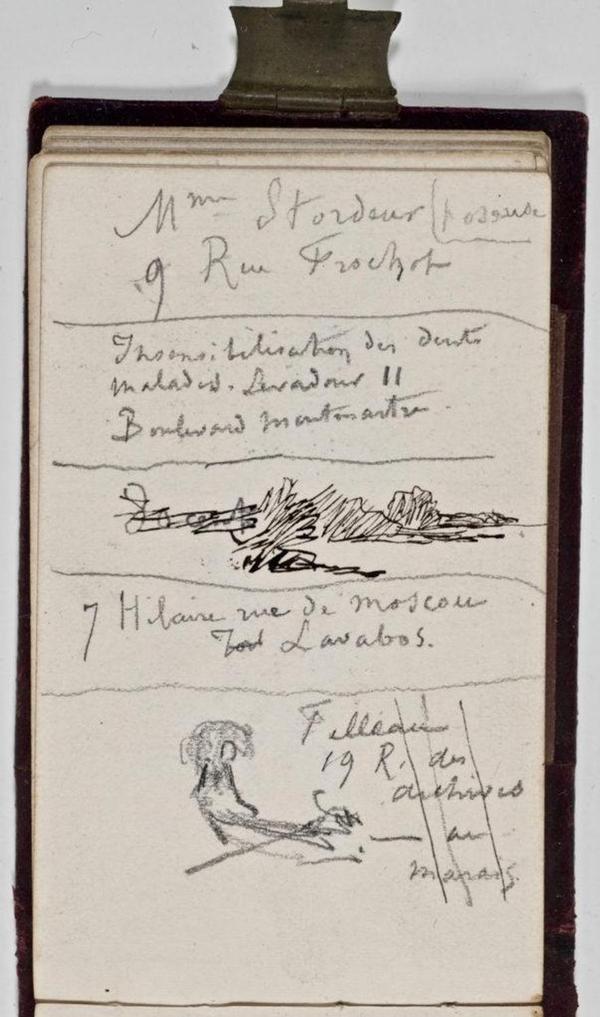 Mme Stordeur (poseuse
9 Rue Frochot
Insensibilisation des dents
malades. Levadour 11
Boulevard Montmartre.
7 Hilaire rue de Moscou
Lavabos.
Filleau
19 R. des
archives
— au
marais.